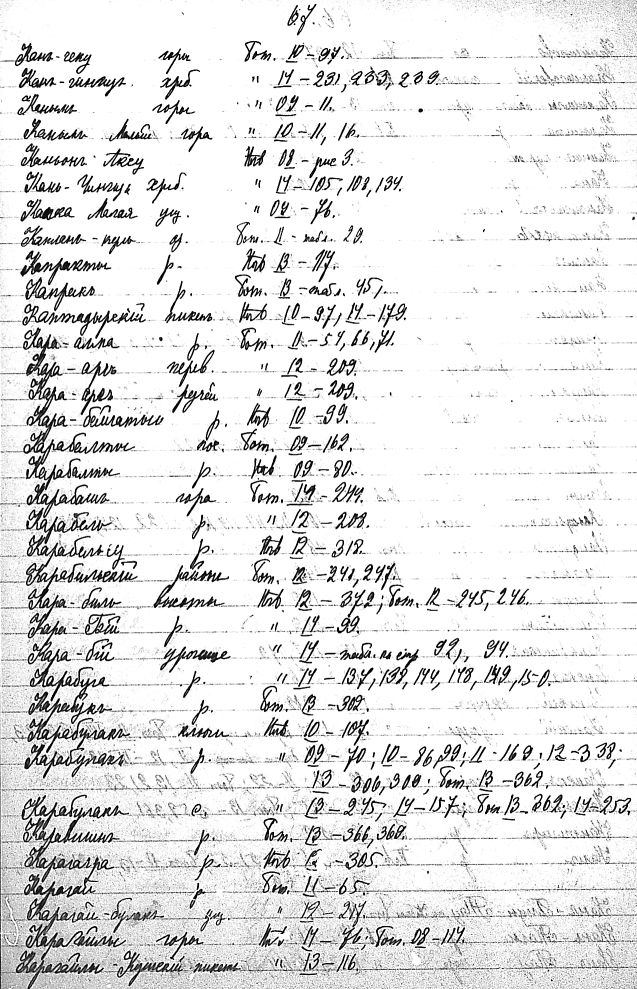 67.
Канъ-секу горы Бот. 10-97.
Кань-чингиз хреб. " 14-231, 233, 239.
Канымъ горы " 09-11.
Канымъ Малый гора " 10-11, 16.
Каньонъ Аксу Поч 08-рис 3.
Кань-Чингизъ хреб. " 14-105, 108, 134.
Капка Малая ущ. " 09-76.
Каплень-куль оз. Бот. 11-табл. 29.
Капракты р. Поч 13-117.
Капрекъ р. Бот. 13-табл. 45,.
Каптадырскій пикетъ Поч 10-97, 14-179.
Кара-алма р. Бот. 11-54, 66, 71.
Кара-арчъ перев. " 12-209.
Кара-арчъ ручей " 12-209.
Кара-бейгатыю р. Поч 10-99.
Карабалты пос. Бот. 09-162.
Карабалты р. Поч 09-80.
Карабашъ гора Бот. 14-244.
Карабель р. " 12-208.
Карабельсу р. Поч 12-312.
Карабильскій районъ Бот. 12-241, 247.
Кара-биль высоты Поч. 12-372; Бот. 12-245, 246.
Кара-бій р. " 14-99.
Кара-бій урочище " 14-табл. къ стр 92, , 94.
Карабуга р. " 14-137, 139, 144, 148, 149, 150.
Карабукъ р. Бот. 13-302.
Карабулакъ ключи Поч 10-107.
Карабулакъ р. " 09-70; 10-86, 99; 11-169; 12-338;
13-306, 309; Бот. 13-362.
Карабулакъ с. " 13-275, 14-157; Бот 13-262; 14-253.
Каравшинъ р. Бот. 13-366, 368.
Карагайра р. Поч 12-305.
Карагай р Бот. 11-65.
Карагай-булакъ ущ. " 12-217.
Карагайлы горы Поч 14-76; Бот. 08-114.
Карагайлы-Кумскій пикетъ " 13-116.